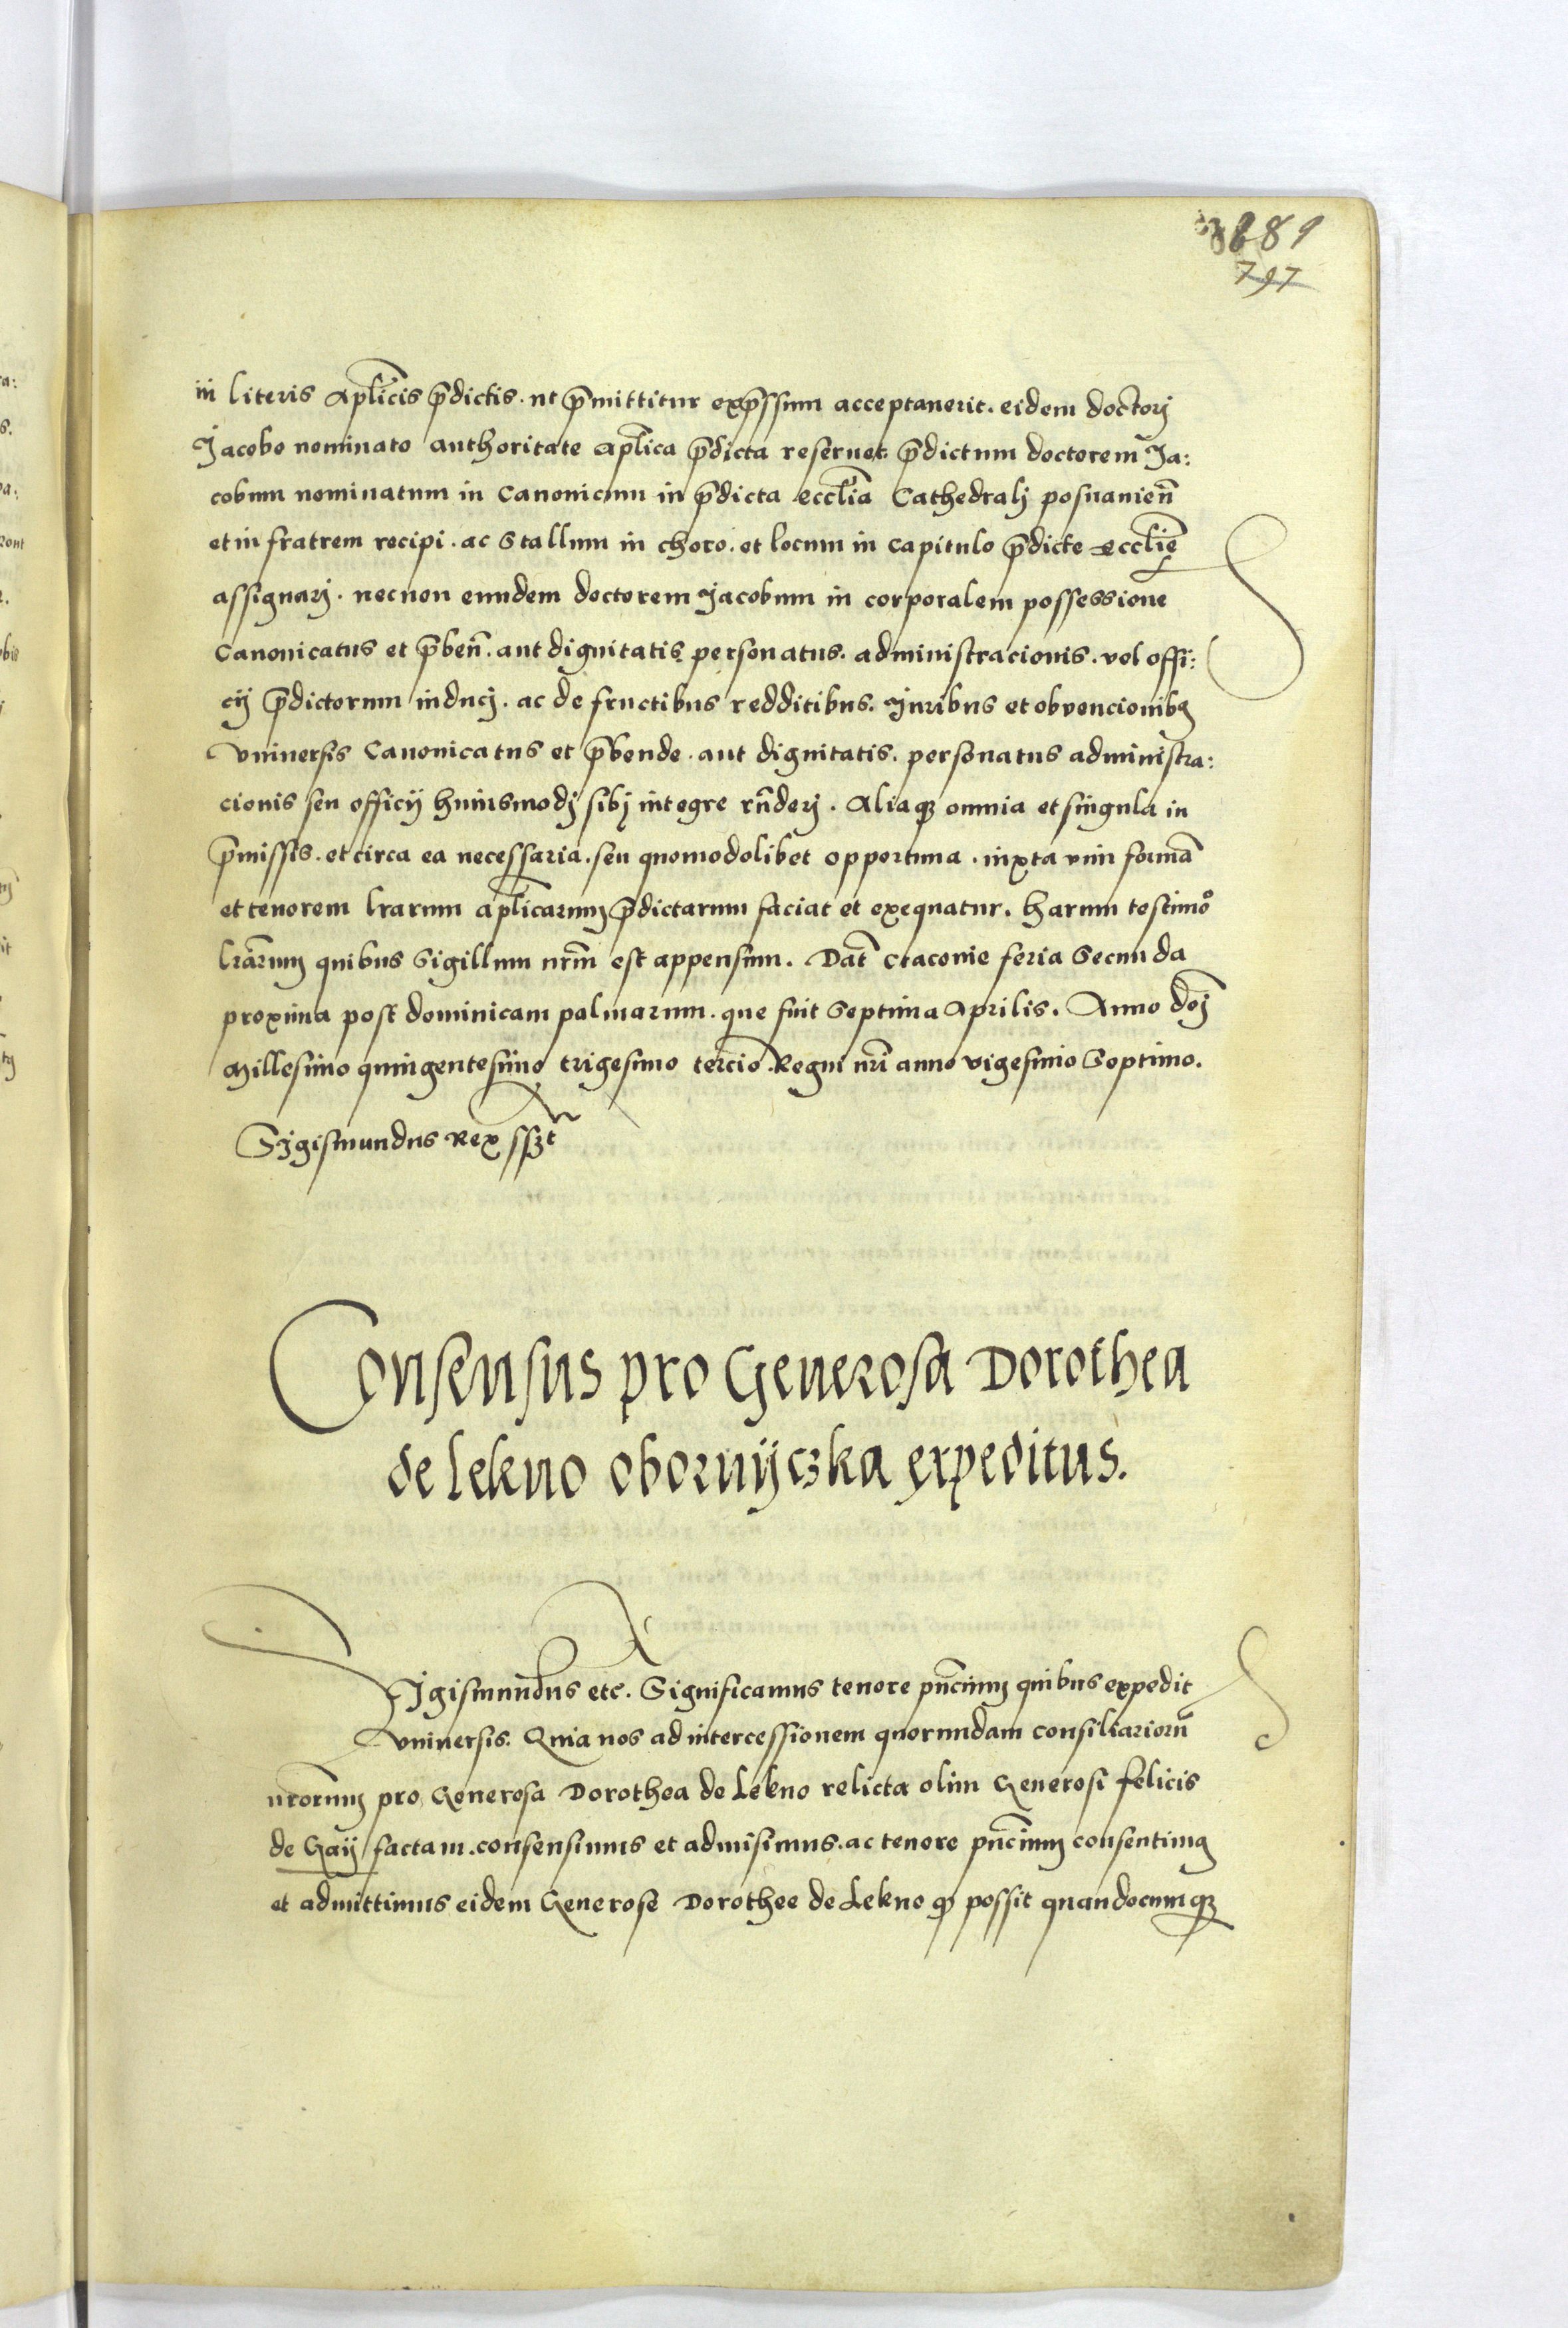 889
797
in literis aplicis p̄dictis. ut p̄mittitur exp̄ssum acceptauerit. eidem doctorj
Jacobo nominato authoritate aplica p̄dicta reseruet. p̄dictum doctorem Ja:
cobum nominatum in Canonicum in p̄dicta ecclīa Cathedralj posnanien̄
et in fratrem recipi. ac Stallum in choro. et locum in capitulo p̄dicte ecclīe
assignarj. necnon eundem doctorem Jacobum in corporalem possessione
Canonicatus et p̄ben̄. aut dignitatis personatus. administracionis. vel offi:
cij p̄dictorum inducj. ac de fructibus redditibus. Juribus et obvencionibꝫ
vniuersis Canonicatus et p̄bende. aut dignitatis. personatus administra:
cionis seu officij huiusmodj sibj integre rn̄derj. Aliaqꝫ omnia et singula in
p̄missis. et circa ea necessaria. seu quomodolibet opportuna. iuxta vim formā
et tenorem lrarum aplicarum p̄dictarum faciat et exequatur. harum testimo͛
lrārum quibus Sigillum nrm̄ est appensum. Dat̄ Cracouie feria Secunda
proxima post dominicam palmarum. que fuit Septima Aprilis. Anno dnj̄
Millesimo quingentesimo trigesimo tercio. Regni nrī anno vigesimo Septimo.
Sigismundus Rex sszt
Consensus pro Generosa Dorothea
de Lekno obornijczka expeditus.
Sigismundus etc. Significamus tenore pn̄cium quibus expedit
vniuersis. Quia nos ad intercessionem quorundam consiliariorū
nrorum pro Generosa Dorothea de Lekno relicta olim Generosi felicis
de Gaij factam. consensimus et admisimus. ac tenore pn̄cium consentimꝫ
et admittimus eidem Generose Dorothee de Lekno qꝫ possit quandocumqꝫ